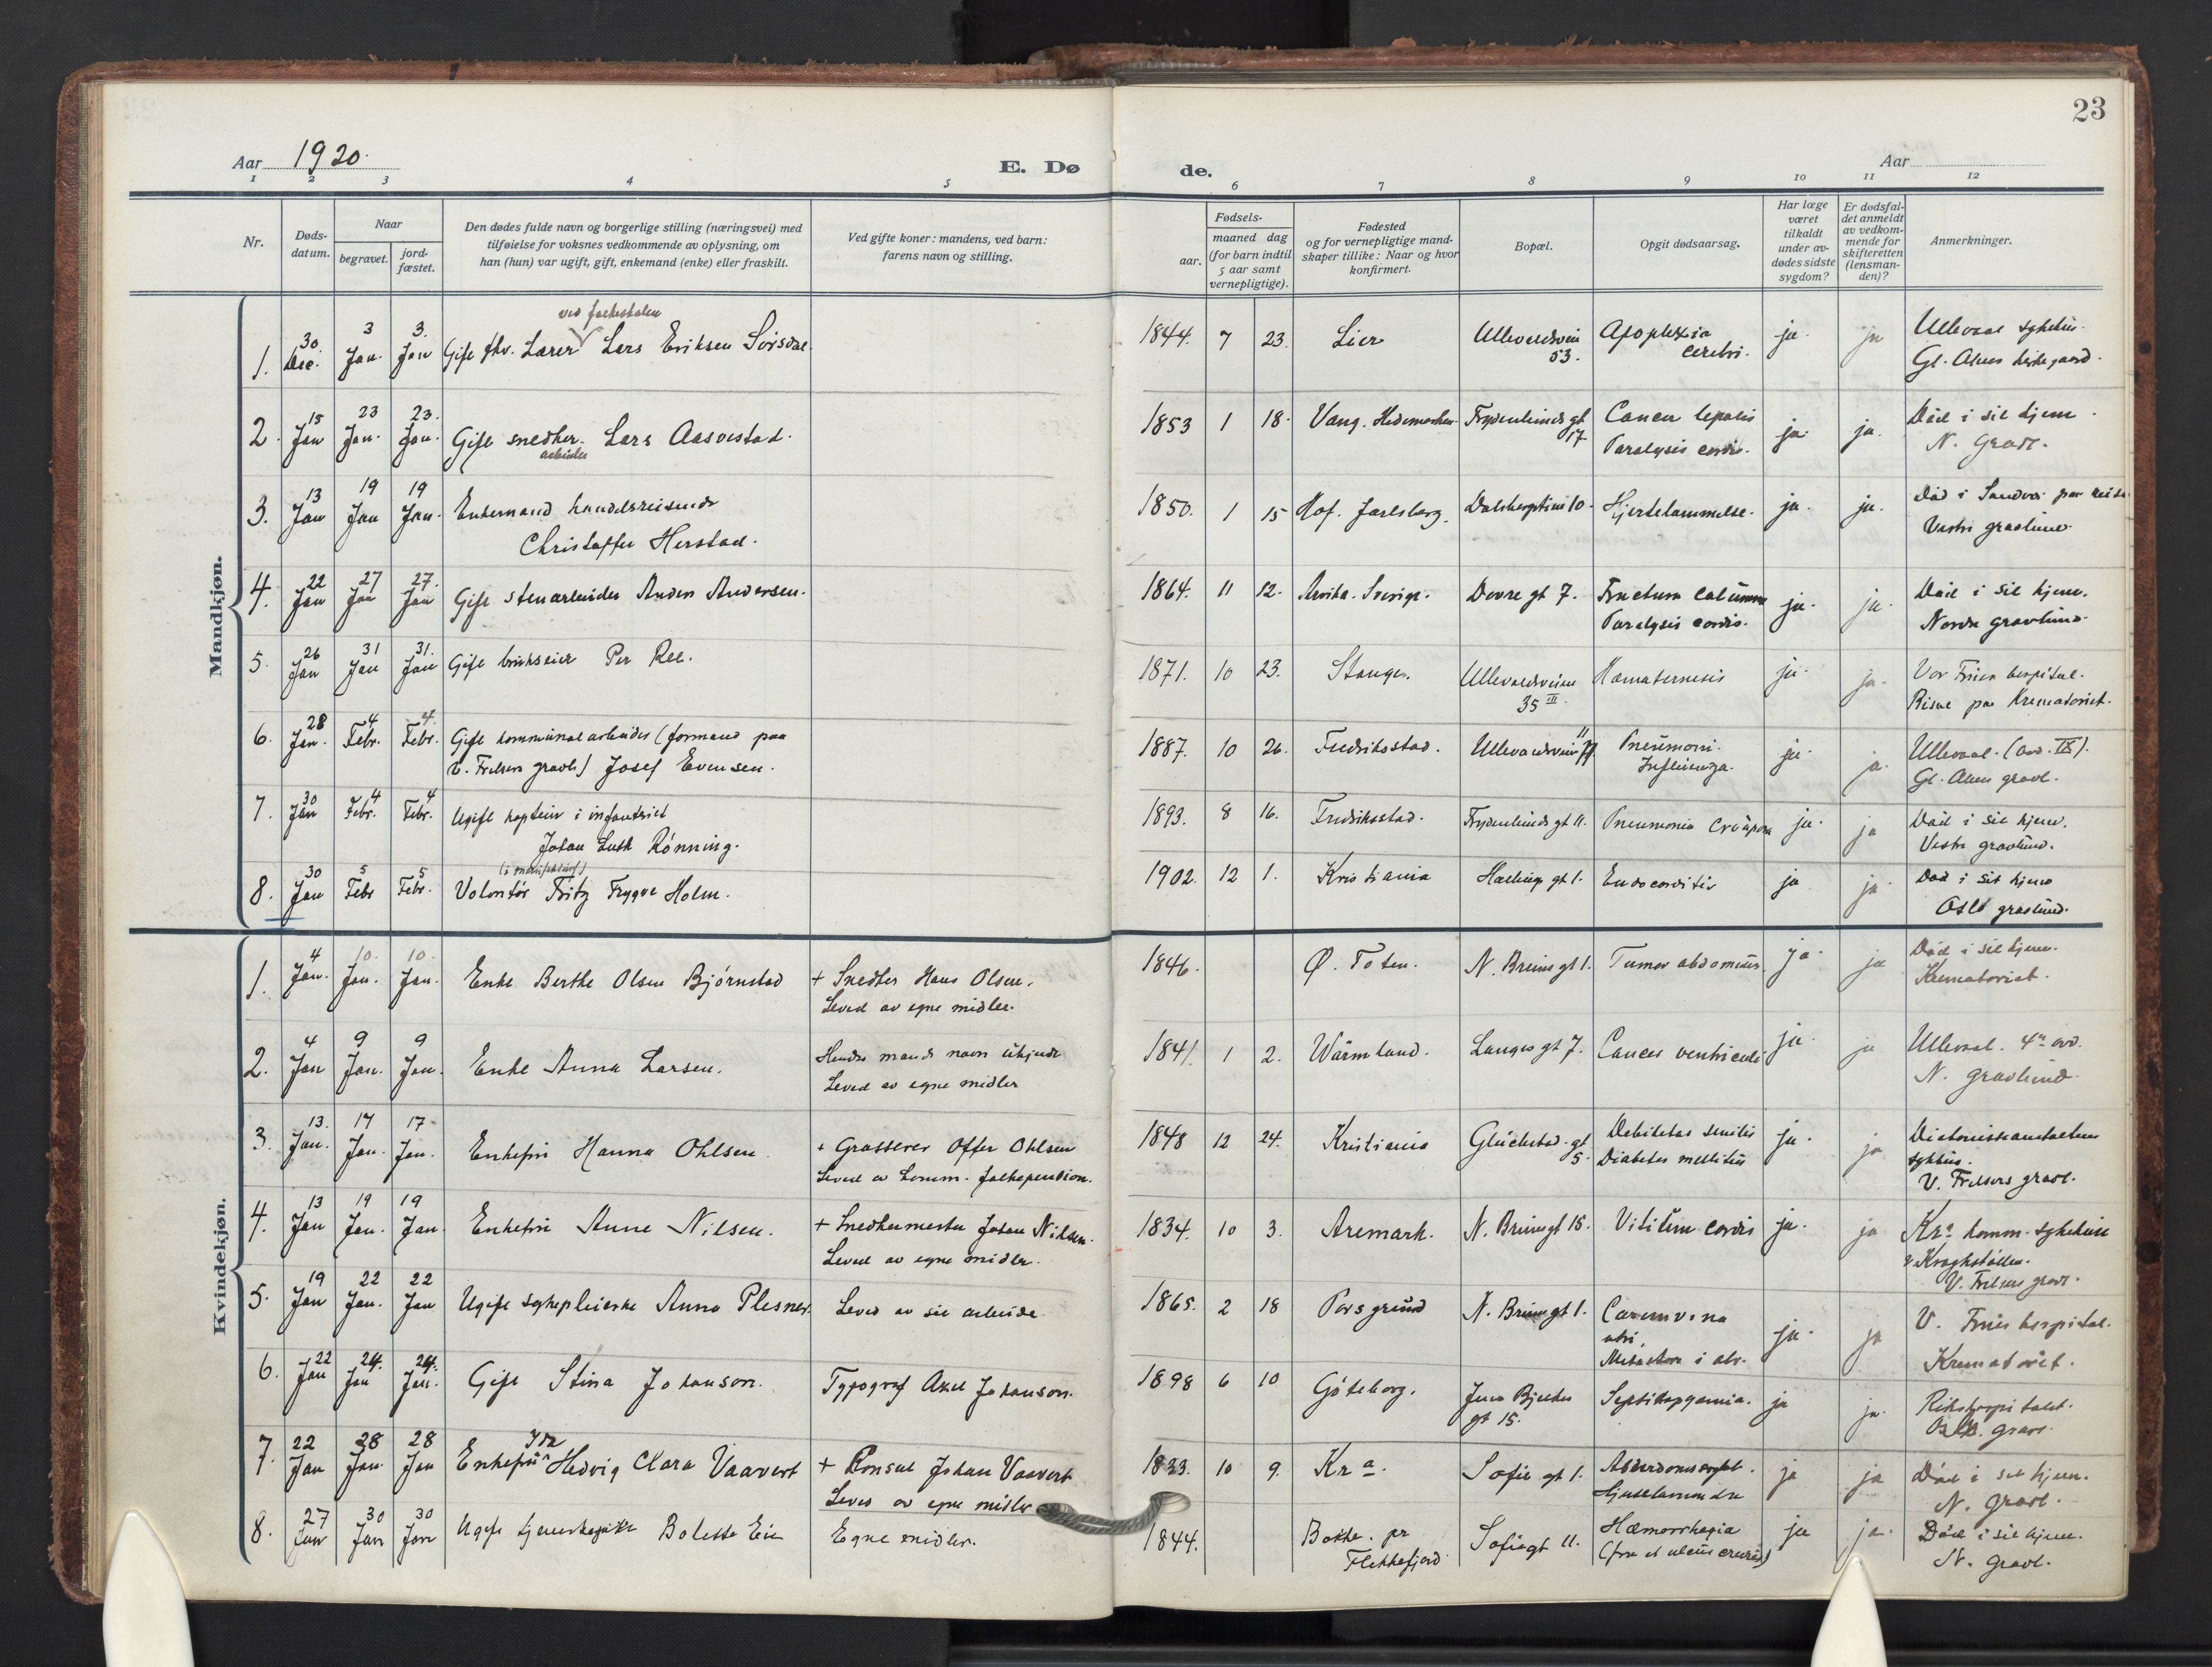 23
Aar 1920.
E. Døde.
Aar
1 2 3 4 5 6 7 8 9 10 11 12
Nr.
Døds-
datum.
Naar
begravet.
jord-
fæstet.
Den dødes fulde navn og borgerlige stilling (næringsvei) med
tilføielse for voksnes vedkommende av oplysning, om
han (hun) var ugift, gift, enkemand (enke) eller fraskilt.
Ved gifte koner: mandens, ved barn:
farens navn og stilling.
Fødsels-
aar.
maaned dag
(for barn indtil
5 aar samt
vernepligtige).
Fødested
og for vernepligtige mand-
skaper tillike: Naar og hvor
konfirmert.
Bopæl.
Opgit dødsaarsag.
Har læge
været
tilkaldt
under av-
dødes sidste
sygdom?
Er dødsfal-
det anmeldt
av vedkom-
mende for
skifteretten
(lensman-
den)?
Anmerkninger.
Mandkjøn.
1. 30 Dec. 3 Jan. 3. Jan Gift fhv. Lærer ved folkeskolen Lars Eriksen Sørsdal. 1844. 7 23. Lier Ullevoldsvein 53. Apoplexia cerebri. ja. ja Ullevaal sykehus.
Gl. Akers kirkegaard.
2. 15 Jan 23 Jan. 23. Jan. Gift snedker arbeider Lars Aasvestad. 1853 1 18. Vang. Hedemarken Frydenlunds gt 17. Cancer hepatis
Paralysis cordis. ja. ja. Død i sit hjem.
N. Gravl.
3. 13 Jan 19 Jan 19 Jan. Enkemand handelsreisende
Christoffer Herstad. 1850. 1 15 Hof. Jarlsberg. 10. Hjertelammelse. ja. ja. Død i Sandvi paa reise
Vestre gravlund.
4. 22 Jan 27 Jan 27. Jan Gift stenarbeider Anders Andersen. 1864. 11 12. Arvika. Sverige. Dovre gt 7. Fractura columna
Paralysis cordis. ja. ja. Død i sit hjem.
Nordre gravlund.
5. 26 Jan 31 Jan 31. Jan Gift brukseier Per Ree. 1871. 10 23. Stange. Ullevoldsveien
35 III. Hæmatemesis ja. ja. Vor Frues hospital.
Krematoriet.
6. 28 Jan. 4 Febr. 4. Febr. Gift kommunalarbeider (formand paa
V. Frelsers gravl.) Josef Evensen. 1887. 10 26. Fredriksstad. Ullevoldsvein Pneumoni.
Influenza. ja. ja. Ullevaal. (avd. IX).
Gl. Akers gravl.
7. 30 Jan 4 Febr. 4 Febr. Ugift kaptein i infanteriet
Johan Rønning. 1893. 8 16. Fredriksstad. Frydenlunds gt 11. Pneumonia Crouposa ja. ja Død i sit hjem.
Vestre gravlund.
8. 30 Jan 5 Febr 5 Febr. Volontør Fritz Trygve Holm. 1902. 12 1. Kristiania Hallings gt 1. Endocarditis ja ja. Død i sit hjem
Oslo gravlund.
Kvindekjøn.
1. 4 Jan. 10. Jan. 10. Jan. Enke Berthe Olsen Bjørnstad + Snedker Hans Olsen.
Leved av egne midler. 1846. Ø. Toten. N. Bruns gt 1. Tumor abdominis ja. ja Død i sit hjem.
Krematoriet.
2. 4 Jan 9 Jan. 9 Jan. Enke Anna Larsen. Hendes mands navn ukjendt
Leved av egne midler 1841. 1 2. Wärmland. Langes gt 7. Cancer ventriculi ja. ja Ullevaal. 4de avd.
N. gravlund.
3. 13. Jan. 17 Jan. 17. Jan. Enkefru Hanna Ohlsen. + Grosserer Offer Ohlsen
Leved av komm. folkepension. 1848 12 24. Kristiania Glückstad. gt 5. Debilitas senilis
Diabetes mellitus ja. ja Diakonisseanstaltens
sykhus.
V. Frelsers gravl.
4. 13 Jan 19 Jan. 19 Jan. Enkefru Anne Nilsen. + Snedkermester Johan Nilsen.
Leved av egne midler. 1834. 10 3. Aremark. N. Bruns gt 15. Vitium cordis ja. ja Kra komm. sykehus
V. Frelsers gravl.
5. 19 Jan 22 Jan. 22 Jan Ugift sykepleierske Anna Plesner. Leved av sit arbeide. 1865. 2 18 Porsgrund N. Bruns gt 1. ja. ja V. Frues hospital.
Krematoriet.
6. 22 Jan 24. Jan 24. Jan. Gift Stina Johanson. Typograf Axel Johanson. 1898 6 10 Göteborg. Jens Bjelkes
gt 15. Septikopyæmia. ja ja. Rikshospitalet.
gravl.
7. 22 Jan 28 Jan. 28 Jan Enkefru Ida Hedvig Clara Vaavert + Konsul Johan Vaavert
Leved av egne midler 1833. 10 9. Kra. Sofie gt 1. ja ja Død i sit hjem.
N. gravl.
8. 27 Jan 30 Jan 30 Jan Ugift Bolette Eie Egne midler. 1844. Bakke. pr
Flekkefjord Sofie gt 11. Hæmorrhagia
(fra et ulcus cruris) ja ja. Død i sit hjem.
N. gravl.